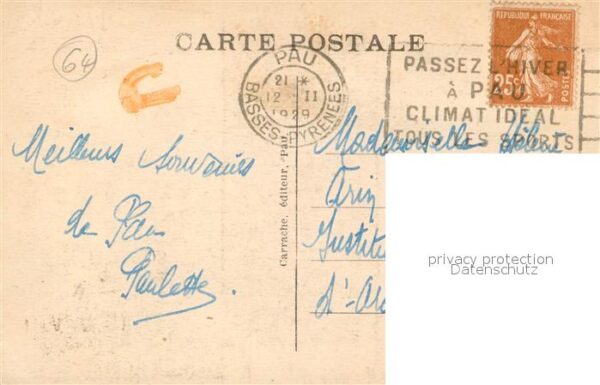 CARTE POSTALE
64
PAU
21 *
12 II
1929
BASSES-PYRENEES
REPUBLIQUE FRANÇAISE
25c
POSTES
PASSEZ L'HIVER
à PAU
CLIMAT IDEAL
TOUS LES SPORTS
Meilleurs Souvenirs
de Pau
Paulette
Carrache, éditeur, Pau
Mademoiselle
privacy protection
Datenschutz